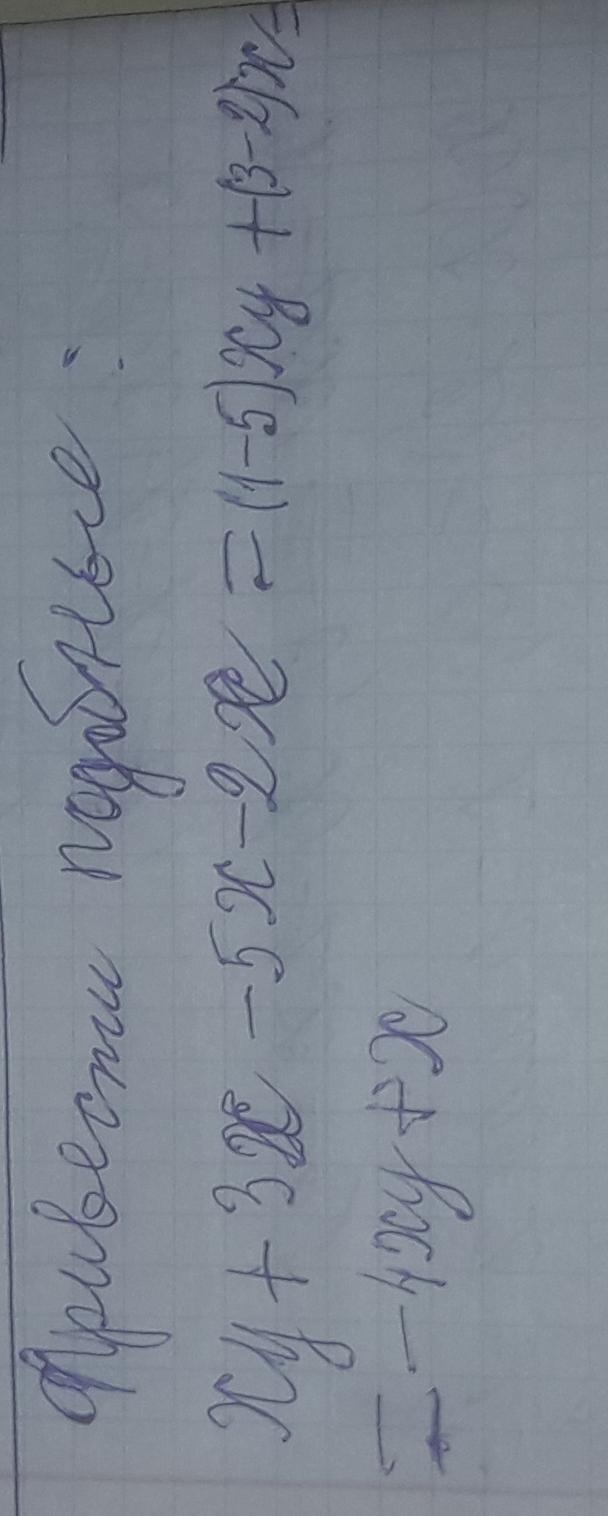 Привести подобные:
xy + 3x - 5x - 2x = (1-5)xy + (3-2)x =
= -4xy + x